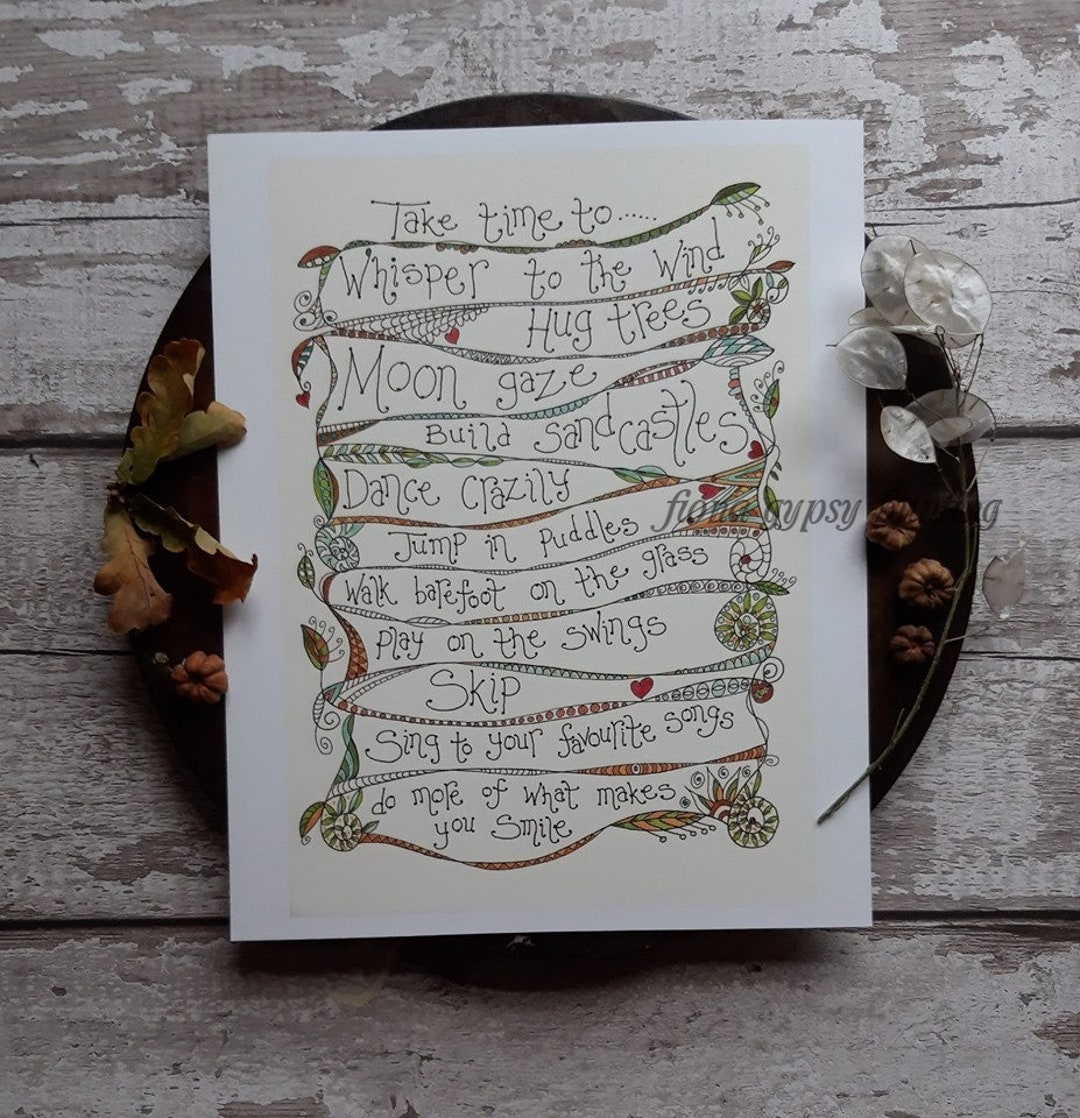 Take time to......
Whisper to the Wind
Hug trees
Moon gaze
Build sandcastles
Dance crazily
Jump in puddles
Walk barefoot on the grass
play on the swings
Skip
Sing to your favourite songs
do more of what makes
you smile
fiona gypsy